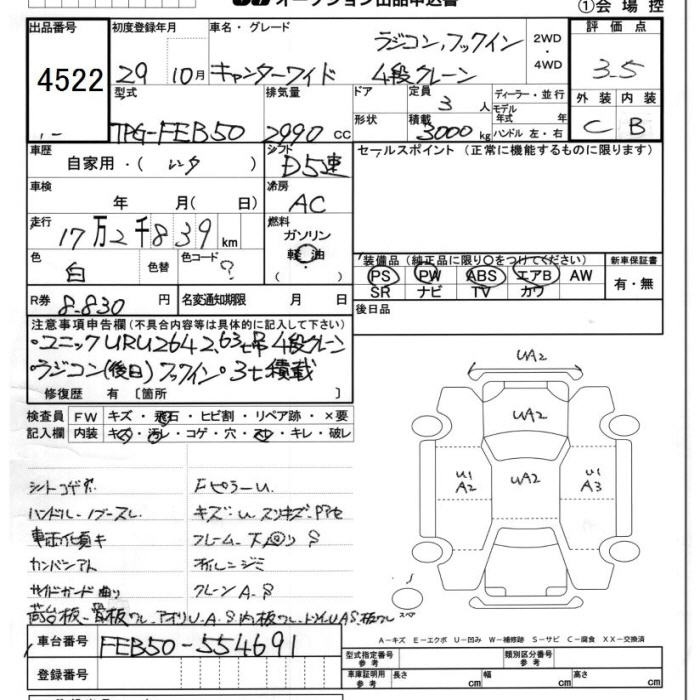 オークション出品申込書
①会場控
出品番号 4522
初度登録年月 29 10月
車名・グレード キャンターワイド
ラジコン,フックイン
4段クレーン
2WD・4WD
評価点 3.5
外装 C 内装 B
型式 TPG-FEB50
排気量 2990 CC
ドア 形状
定員 3 人
積載 3000 kg
ディーラー・並行
モデル年式 年式
ハンドル 左・右
車歴 自家用・( レンタ )
シフト D5速
セールスポイント (正常に機能するものに限ります)
車検 年 月( 日)
冷房 AC
走行 17万2千839 km
燃料 ガソリン 軽油 ( )
色 白 色替 色コード ?
装備品 (純正品に限り〇をつけてください)
PS PW ABS エアB AW
SR ナビ TV カワ
新車保証書 有・無
R券 8.830 円
名変通知期限 月 日
後日品
注意事項申告欄(不具合内容等は具体的に記入して下さい)
・ユニックURU264 2,63t吊 4段クレーン
・ラジコン(後日)フックイン・3t積載
修復歴 有 [箇所 ]
検査員記入欄
FW キズ・飛石・ヒビ割・リペア跡・×要
内装 キズ・汚レ・コゲ・穴・スレ・キレ・破レ
シートコゲ穴 Fピラーu
ハンドル・ノブスレ キズ・u スリキズ
フレーム・下回りS
カンバンアト
サイドガード曲り クレーンA.S
UA2
UA2
U1 A2
UA2
U1 A3
スペア
車台番号 FEB50-554691
A-キズ E-エクボ U-凹み W-補修跡 S-サビ C-腐食 XX-交換済
登録番号
型式指定番号 参考
類別区分番号 参考
車庫証明用 参考 長さ cm 幅 cm 高さ cm